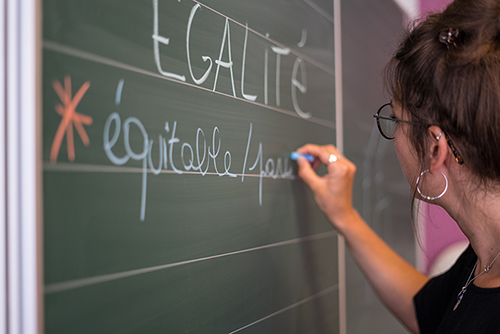 EGALité
équitable/pa